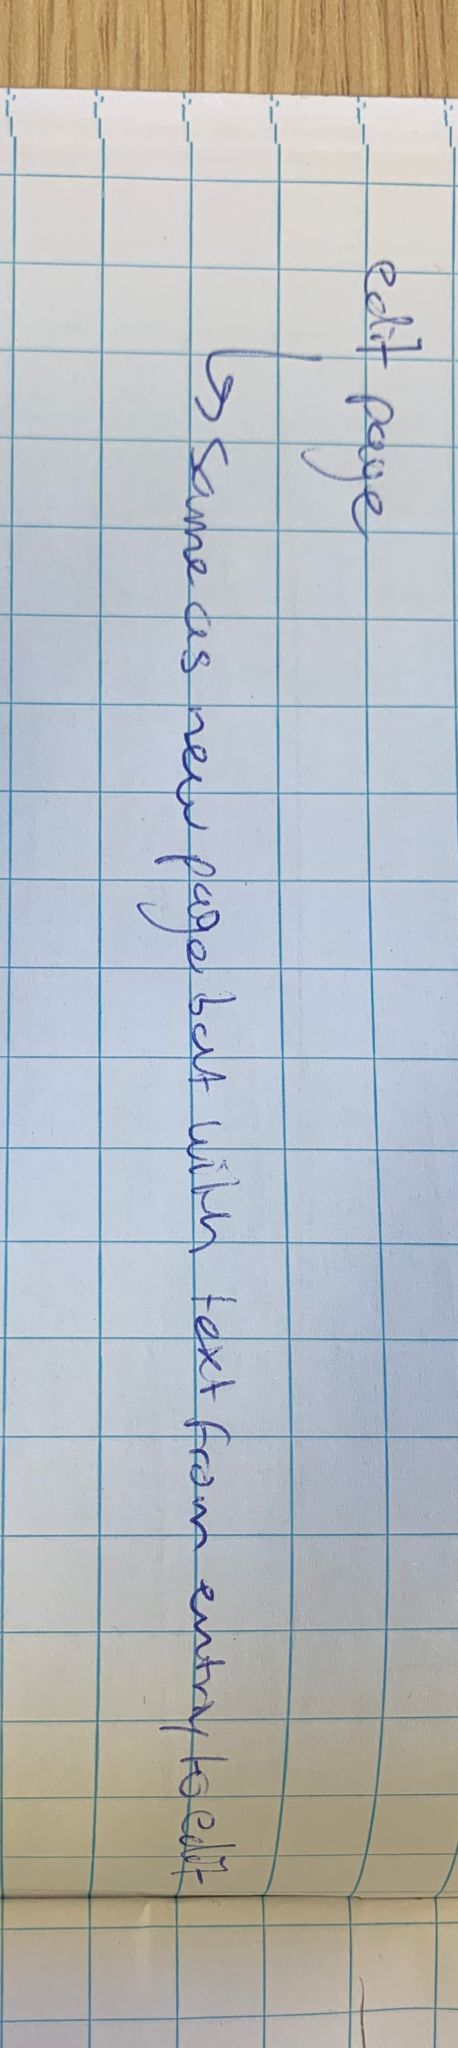 edit page
↳ same as new page but with text from entry to edit